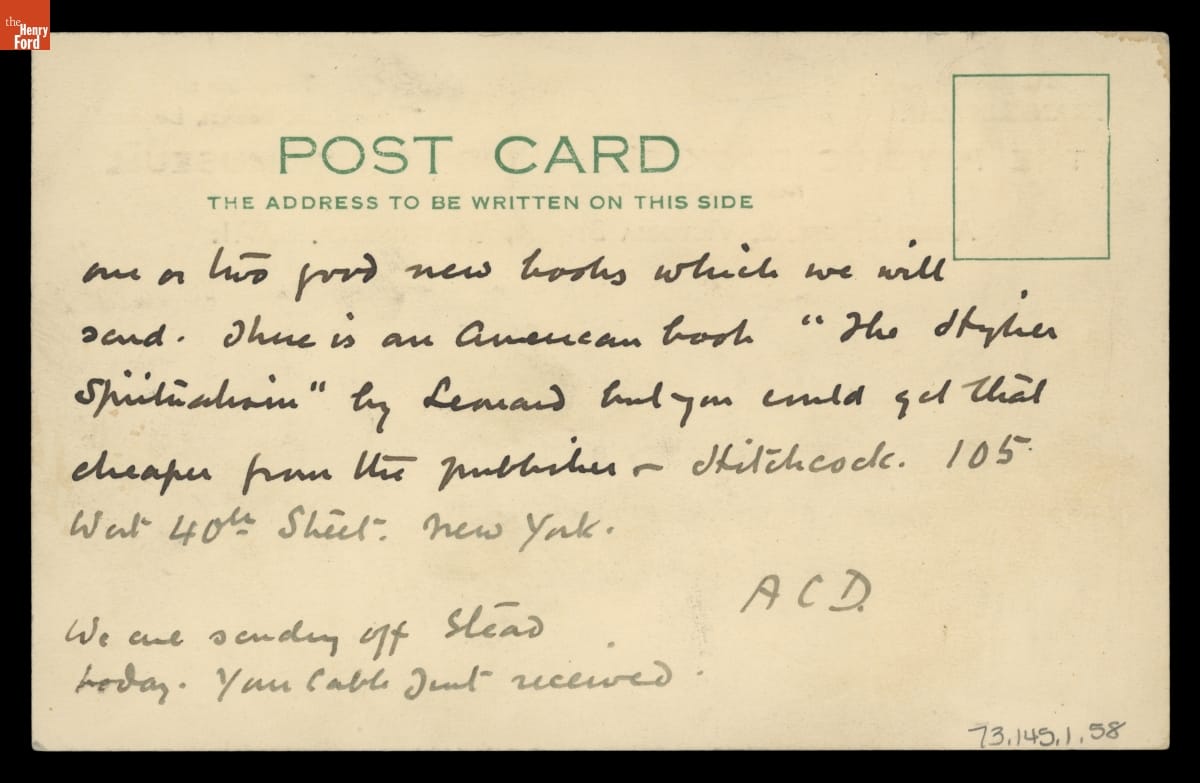 the
Henry
Ford
POST CARD
THE ADDRESS TO BE WRITTEN ON THIS SIDE
one or two good new books which we will
send. There is an American book "The Higher
Spiritualism" by Leonard but you could get that
cheaper from the publisher - Hitchcock. 105
West 40th Street. New York.
A C D.
We are sending off Stead
today. Your Cable Just received.
73.145.1.58